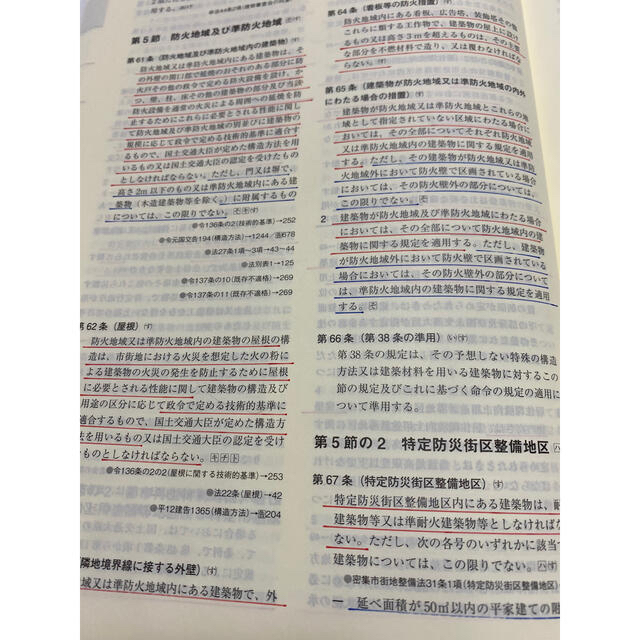 第5節 防火地域及び準防火地域
第61条(防火地域及び準防火地域内の建築物)
防火地域又は準防火地域内にある建築物は、そ
の外壁の開口部で延焼のおそれのある部分に防
火戸その他の政令で定める防火設備を設け、か
つ、壁、柱、床その他の建築物の部分及び当該
防火設備を通常の火災による周囲への延焼を防
止するためにこれらに必要とされる性能に関し
て防火地域及び準防火地域の別並びに建築物の
規模に応じて政令で定める技術的基準に適合す
るもので、国土交通大臣が定めた構造方法を用
いるもの又は国土交通大臣の認定を受けたもの
としなければならない。ただし、門又は塀で、
高さ2m以下のもの又は準防火地域内にある建
築物(木造建築物等を除く。)に附属するもの
については、この限りでない。
●令136条の2(技術的基準)→252
●令元国交告194(構造方法)→1244/
●法27条1項〜3項→43〜44
●法別表1→125
●令137条の10(既存不適格)→269
●令137条の11(既存不適格)→269
第62条(屋根)
防火地域又は準防火地域内の建築物の屋根の構
造は、市街地における火災を想定した火の粉に
よる建築物の火災の発生を防止するために屋根
に必要とされる性能に関して建築物の構造及び
用途の区分に応じて政令で定める技術的基準に
適合するもので、国土交通大臣が定めた構造方
法を用いるもの又は国土交通大臣の認定を受け
ものとしなければならない。
●令136条の2の2(屋根に関する技術的基準)→253
●法22条(屋根)→42
●平12建告1365(構造方法)→
隣地境界線に接する外壁)
域又は準防火地域内にある建築物で、外
第64条(看板等の防火措置)
防火地域内にある看板、広告塔、装飾塔その他
これらに類する工作物で、建築物の屋上に設け
るもの又は高さ3mを超えるものは、その主要
な部分を不燃材料で造り、又は覆わなければな
らない。
第65条(建築物が防火地域又は準防火地域の内外
にわたる場合の措置)
建築物が防火地域又は準防火地域とこれらの地
域として指定されていない区域にわたる場合に
おいては、その全部についてそれぞれ防火地域
又は準防火地域内の建築物に関する規定を適用
する。ただし、その建築物が防火地域又は準防
火地域外において防火壁で区画されている場合
においては、その防火壁外の部分については、
この限りでない。
2 建築物が防火地域及び準防火地域にわたる場合
においては、その全部について防火地域内の建
築物に関する規定を適用する。ただし、建築物
が防火地域外において防火壁で区画されている
場合においては、その防火壁外の部分について
は、準防火地域内の建築物に関する規定を適用
する。
第66条(第38条の準用)
第38条の規定は、その予想しない特殊の構造
方法又は建築材料を用いる建築物に対するこの
節の規定及びこれに基づく命令の規定の適用に
ついて準用する。
第5節の2 特定防災街区整備地区
第67条(特定防災街区整備地区)
特定防災街区整備地区内にある建築物は、耐
建築物等又は準耐火建築物等としなければな
ない。ただし、次の各号のいずれかに該当
建築物については、この限りでない。
●密集市街地整備法31条1項(特定防災街区整備地区)
一 延べ面積が50㎡以内の平家建ての